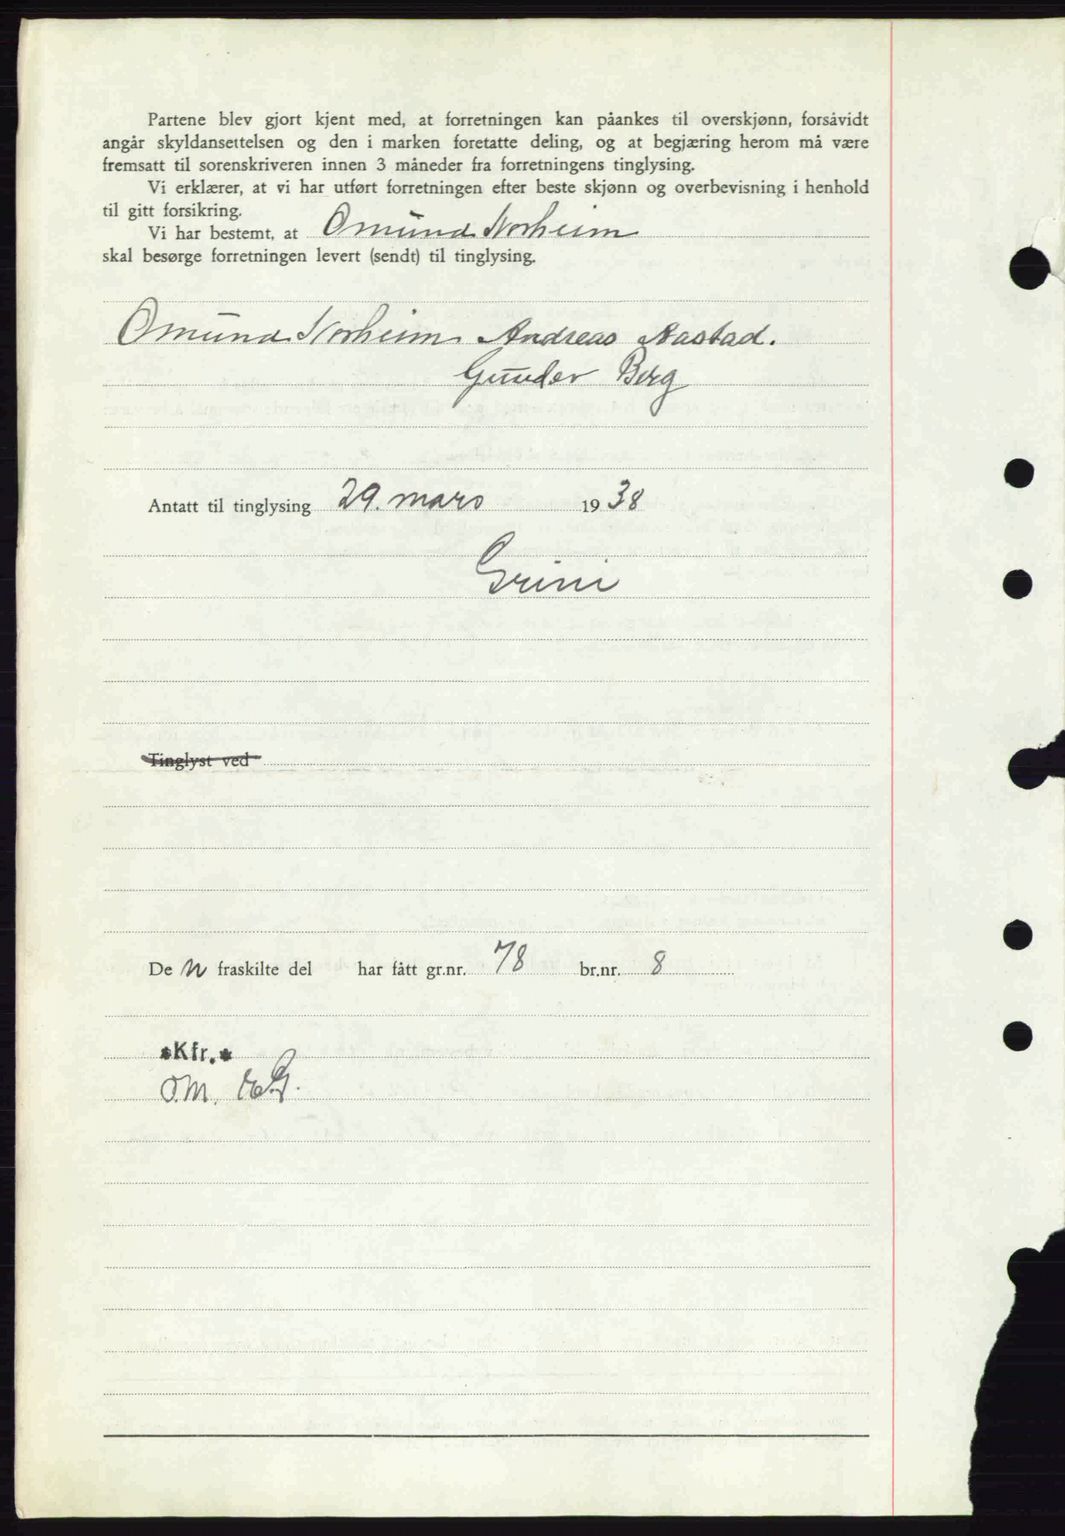 Partene blev gjort kjent med, at forretningen kan påankes til overskjønn, forsåvidt
angår skyldansettelsen og den i marken foretatte deling, og at begjæring herom må være
fremsatt til sorenskriveren innen 3 måneder fra forretningens tinglysing.
Vi erklærer, at vi har utført forretningen efter beste skjønn og overbevisning i henhold
til gitt forsikring.
Vi har bestemt, at Omund Norheim
skal besørge forretningen levert (sendt) til tinglysing.
Omund Norheim Andreas Aastad.
Gunder Berg
Antatt til tinglysing 29. mars 1938
Grini
Tinglyst ved
De n fraskilte del har fått gr.nr. 78 br.nr. 8
*Kfr.*
O.M.